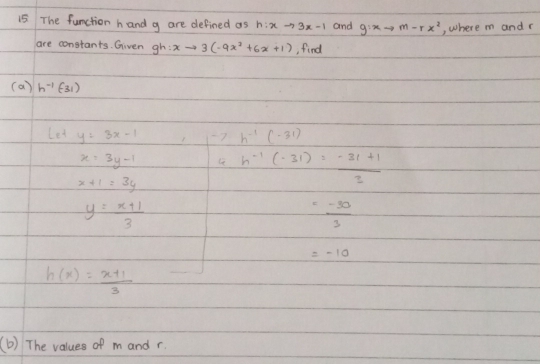 15 The function h and g are defined as h:x → 3x-1 and g:x → m-rx², where m and r
are constants. Given gh:x → 3(-9x²+6x+1), find
(a) h⁻¹(-31)
Let y = 3x-1
x = 3y-1
x+1 = 3y
y = x+1/3
h(x) = x+1/3
→ h⁻¹(-31)
h⁻¹(-31) = -31+1/3
= -30/3
= -10
(b) The values of m and r.